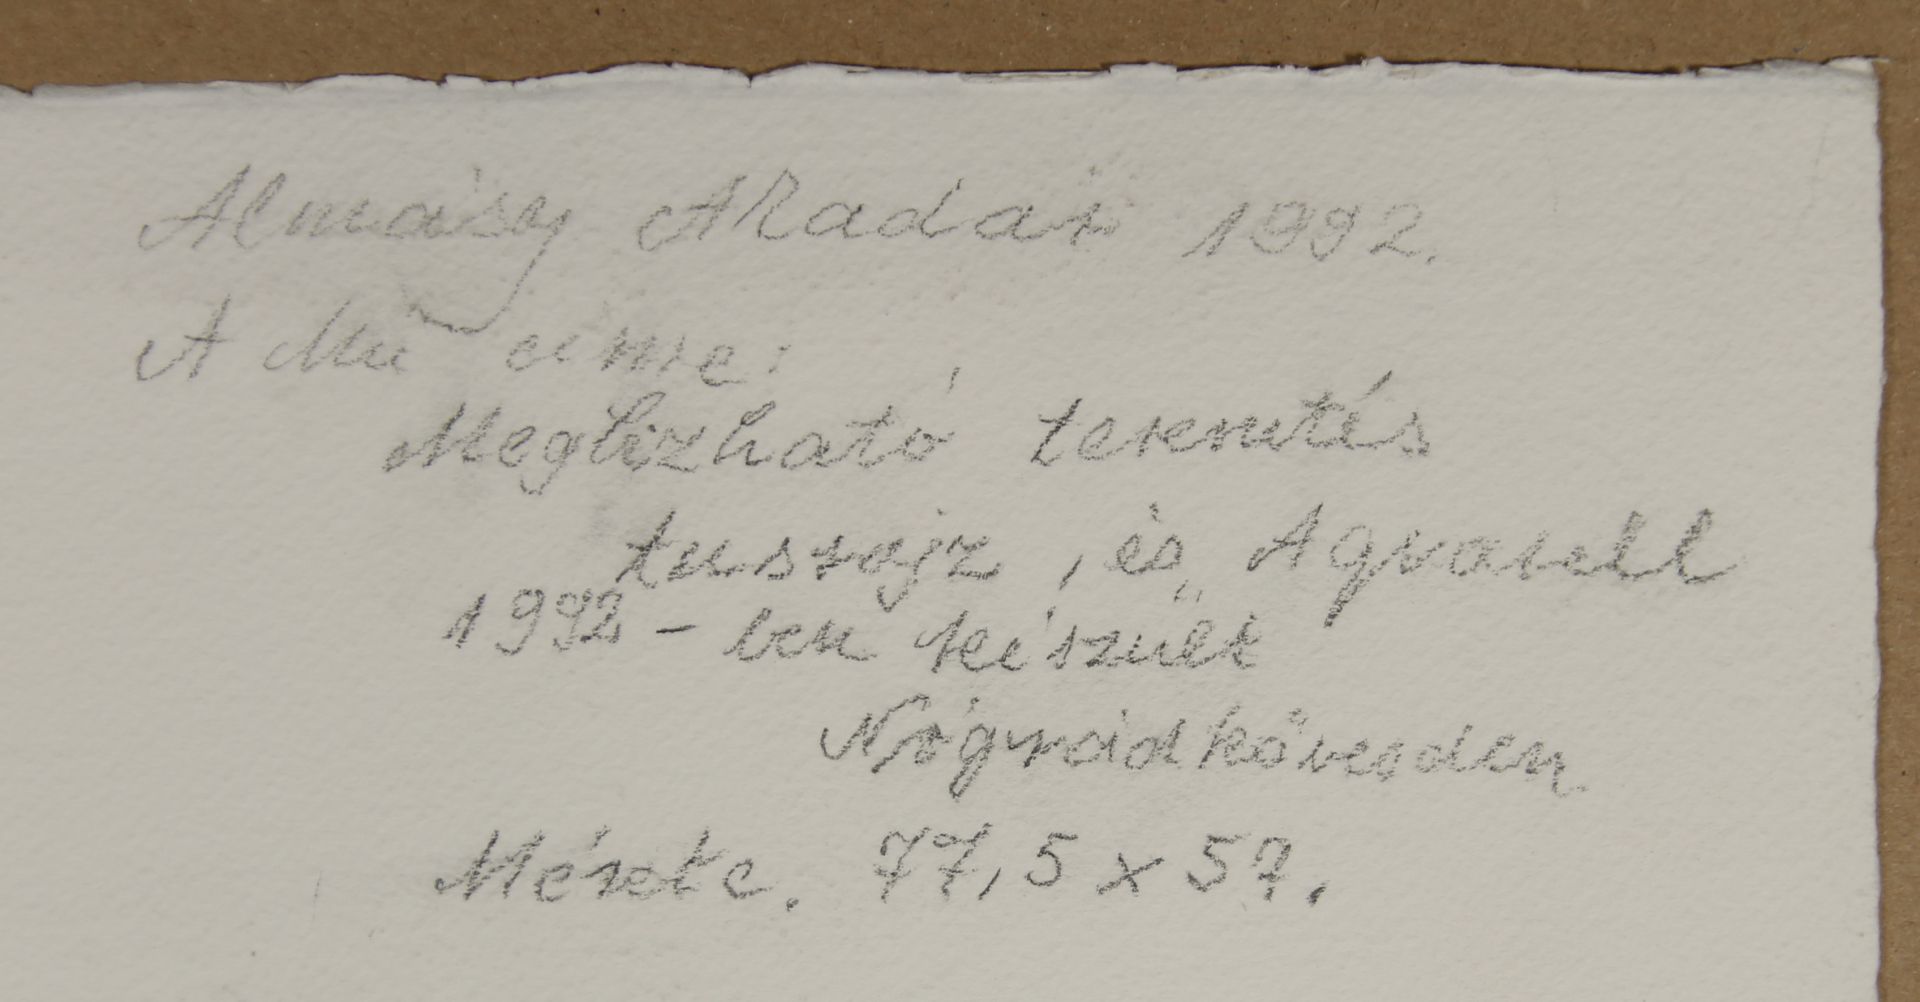 Almásy Aladár 1992.
A Mű címe:
Megbízható teremtés
tusrajz, és Aqvarell
1992-ben készült
Nógrádkövesden
Mérete. 77,5 x 57.